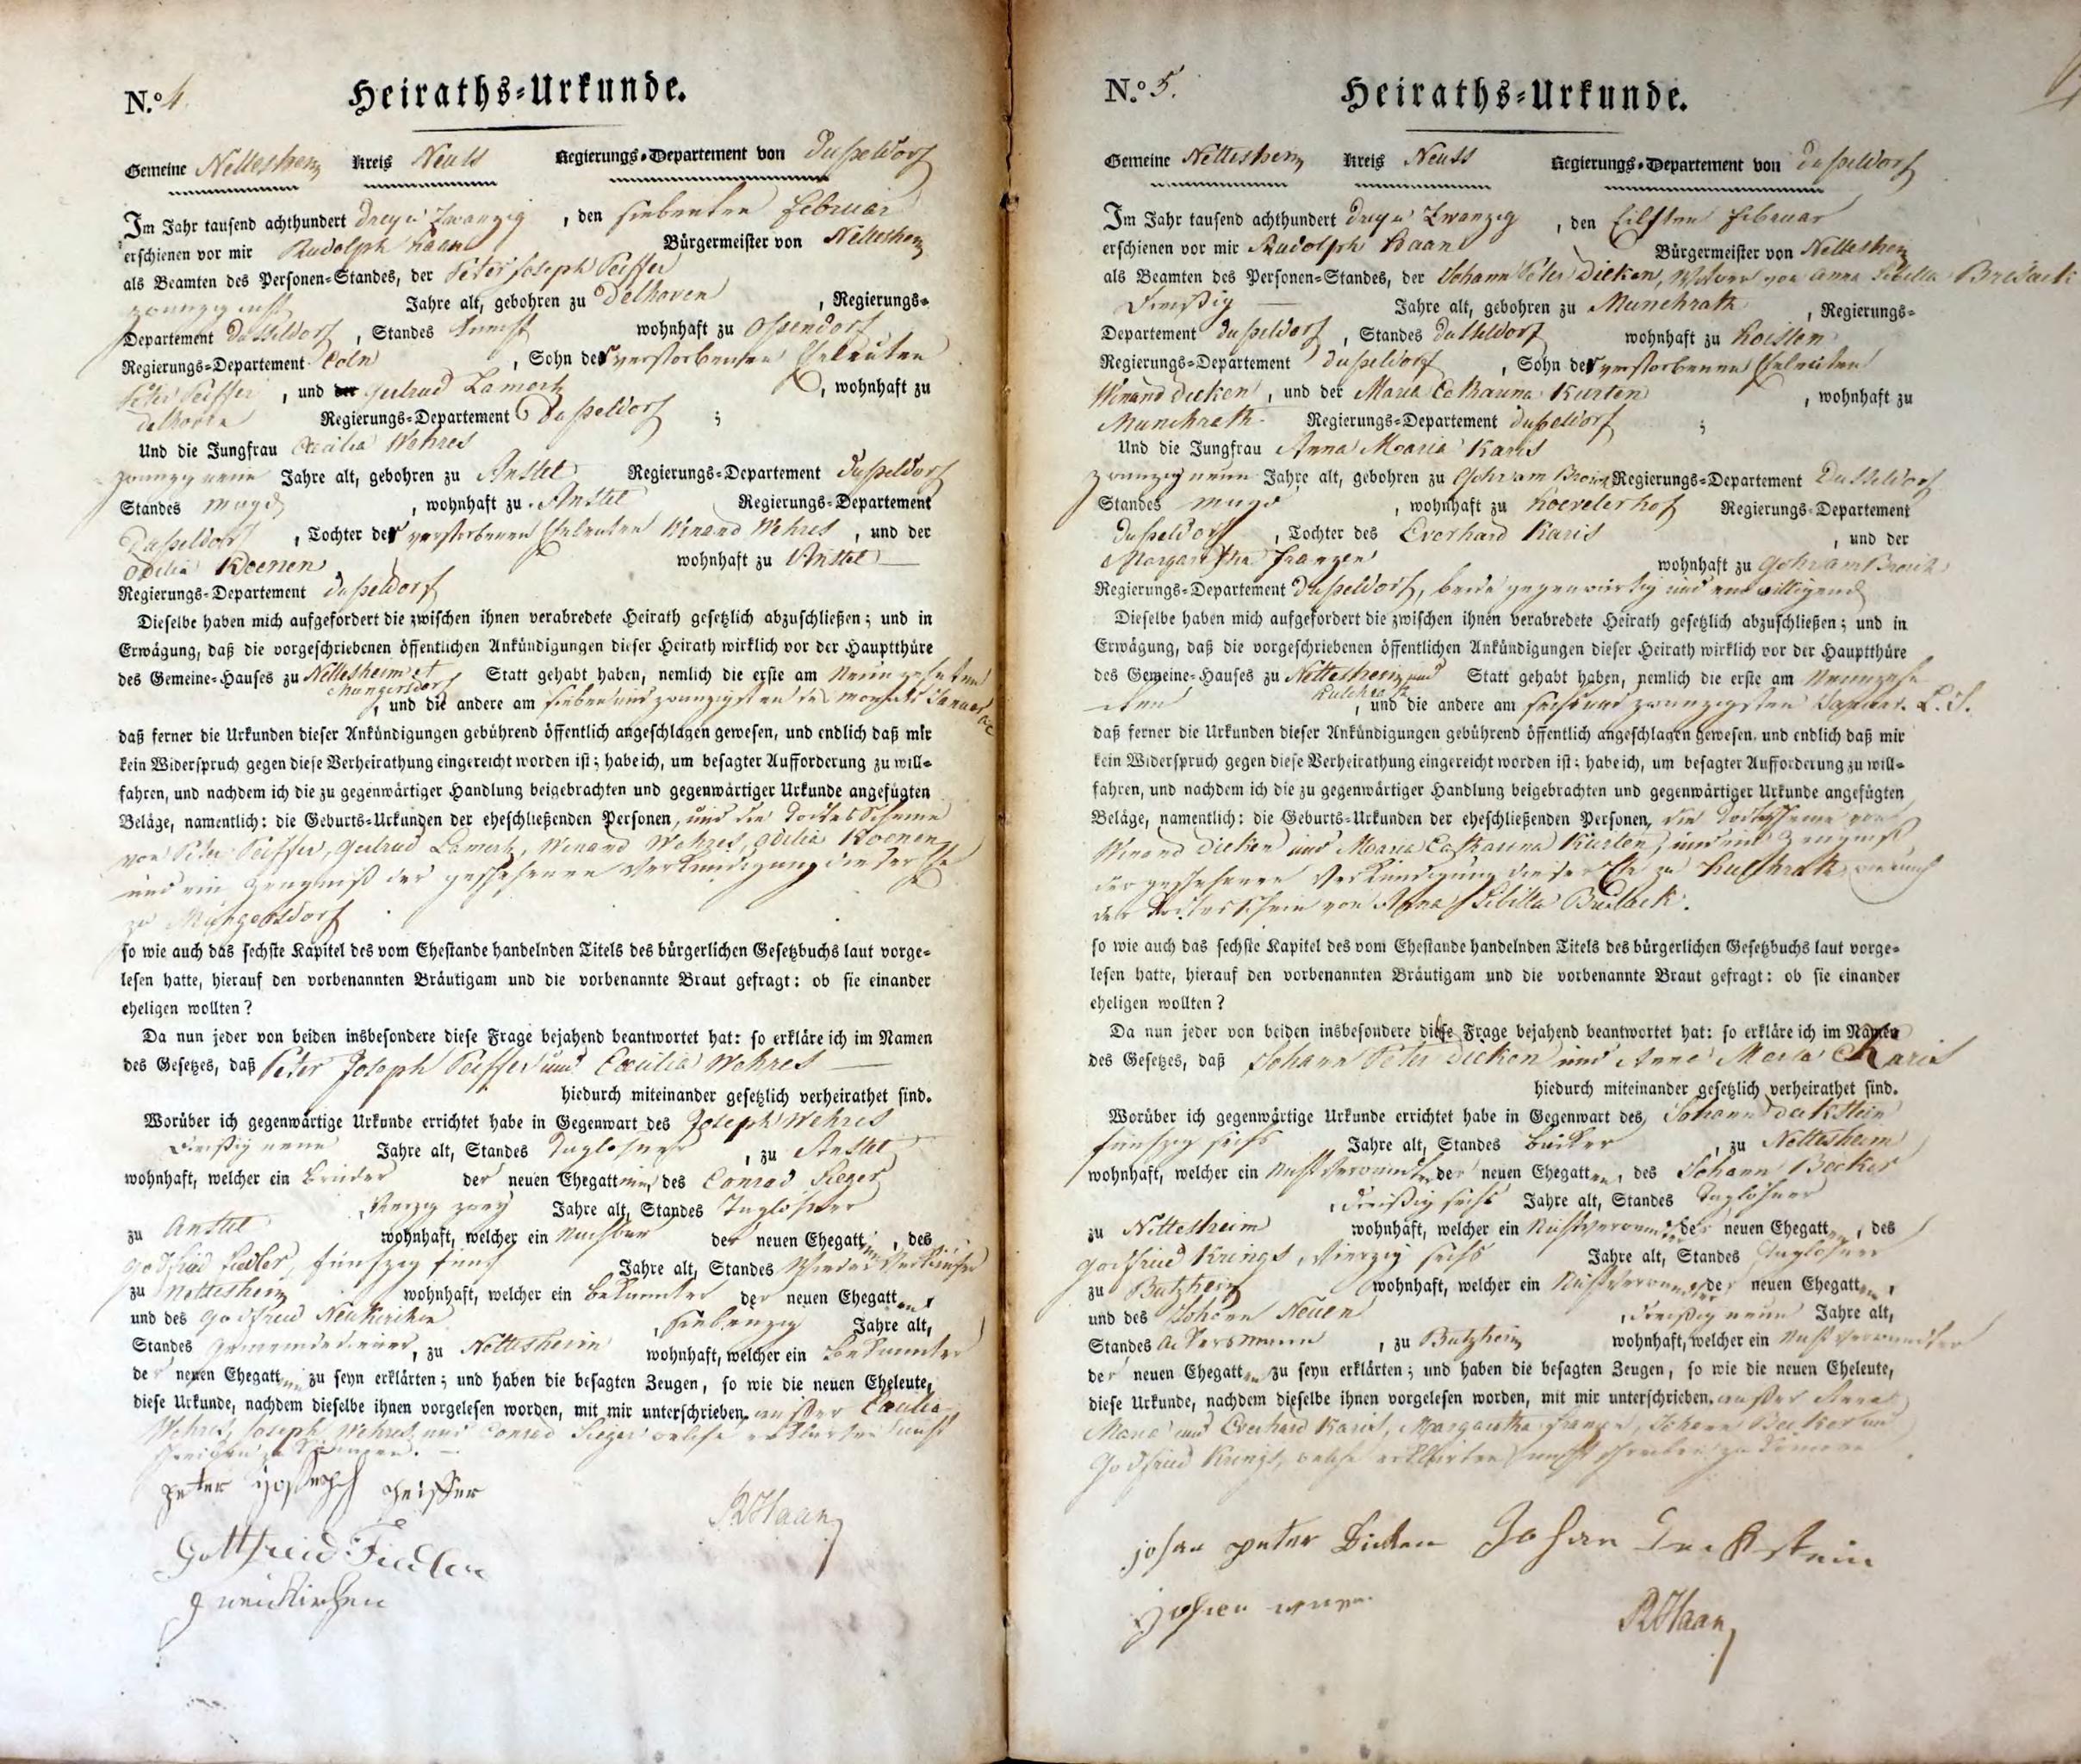 N.º 4.
Heiraths-Urkunde.
Gemeine Nettesheim Kreis Neuss Regierungs-Departement von Dusseldorf
Im Jahr tausend achthundert Drey u Zwanzig , den siebenten Februar
erschienen vor mir Rudolph Haan Bürgermeister von Nettesheim
als Beamten des Personen-Standes, der Peter Joseph Peiffer
zwanzig acht Jahre alt, gebohren zu Delhoven , Regierungs-
Departement Dusseldorf , Standes Knecht wohnhaft zu Ossendorf
Regierungs-Departement Coln , Sohn der verstorbenen Eheleuten
Peter Peiffer , und der Gertrud Lamertz , wohnhaft zu
Delhoven Regierungs-Departement Dusseldorf ;
Und die Jungfrau Cecilia Wehres
zwanzig neun Jahre alt, gebohren zu Anstel Regierungs-Departement Dusseldorf
Standes Magd , wohnhaft zu Anstel Regierungs-Departement
Dusseldorf , Tochter der verstorbenen Eheleuten Winand Wehres , und der
Odilia Koenen wohnhaft zu Anstel
Regierungs-Departement Dusseldorf
Dieselbe haben mich aufgefordert die zwischen ihnen verabredete Heirath gesetzlich abzuschließen; und in
Erwägung, daß die vorgeschriebenen öffentlichen Ankündigungen dieser Heirath wirklich vor der Hauptthüre
des Gemeine-Hauses zu Nettesheim et Mungersdorf Statt gehabt haben, nemlich die erste am Neunzehnten
, und die andere am sieben und zwanzigsten des Monats Januar
daß ferner die Urkunden dieser Ankündigungen gebührend öffentlich angeschlagen gewesen, und endlich daß mir
kein Widerspruch gegen diese Verheirathung eingereicht worden ist; habe ich, um besagter Aufforderung zu will-
fahren, und nachdem ich die zu gegenwärtiger Handlung beigebrachten und gegenwärtiger Urkunde angefügten
Beläge, namentlich: die Geburts-Urkunden der eheschließenden Personen, und die Todesscheine
von Peter Peiffer, Gertrud Lamertz, Winand Wehres, Odilia Koenen
und ein Zeugniß der geschehenen Verkündigung dieser Ehe
zu Müngersdorf
so wie auch das sechste Kapitel des vom Ehestande handelnden Titels des bürgerlichen Gesetzbuchs laut vorge-
lesen hatte, hierauf den vorbenannten Bräutigam und die vorbenannte Braut gefragt: ob sie einander
eheligen wollten?
Da nun jeder von beiden insbesondere diese Frage bejahend beantwortet hat: so erkläre ich im Namen
des Gesetzes, daß Peter Joseph Peiffer und Cecilia Wehres
hiedurch miteinander gesetzlich verheirathet sind.
Worüber ich gegenwärtige Urkunde errichtet habe in Gegenwart des Joseph Wehres
Dreißig neun Jahre alt, Standes Taglohner , zu Anstel
wohnhaft, welcher ein Bruder der neuen Ehegattinn, des Conrad Sieger
, Vierzig zwey Jahre alt, Standes Taglöhner
zu Anstel wohnhaft, welcher ein Nachbar der neuen Ehegattinn, des
Godfried Fiedler, fünfzig fünf Jahre alt, Standes
zu Nettesheim wohnhaft, welcher ein Bekannter der neuen Ehegatten,
und des Godfried Neukirchen , siebenzig Jahre alt,
Standes Gemeindediener, zu Nettesheim wohnhaft, welcher ein Bekannter
der neuen Ehegatten zu seyn erklärten; und haben die besagten Zeugen, so wie die neuen Eheleute,
diese Urkunde, nachdem dieselbe ihnen vorgelesen worden, mit mir unterschrieben. außer Cecilia
Wehres, Joseph Wehres und Conrad Sieger welche erklärten nicht
schreiben zu können.
Peter Joseph Peiffer
RHaan
Gottfried Fiedler
g neukirchen
N.º 5.
Heiraths-Urkunde.
Gemeine Nettesheim Kreis Neuss Regierungs-Departement von Dusseldorf
Im Jahr tausend achthundert Drey u Zwanzig , den Eilften Februar
erschienen vor mir Rudolph Haan Bürgermeister von Nettesheim
als Beamten des Personen-Standes, der Johann Peter Dicken, Witwer von Anna Sibilla Breuack
Dreißig Jahre alt, gebohren zu Munchrath , Regierungs-
Departement Dusseldorf , Standes Dusseldorf wohnhaft zu Hoisten
Regierungs-Departement Dusseldorf , Sohn der verstorbenen Eheleuten
Winand Dicken , und der Maria Catharina Kürten , wohnhaft zu
Munchrath Regierungs-Departement Dusseldorf ;
Und die Jungfrau Anna Maria Karis
zwanzig neun Jahre alt, gebohren zu Gohr am Broich Regierungs-Departement Dusseldorf
Standes Magd , wohnhaft zu Hoevelerhof Regierungs-Departement
Dusseldorf , Tochter des Everhard Karis , und der
Margaretha Franzen wohnhaft zu Gohr am Broich
Regierungs-Departement Dusseldorf, beide gegenwärtig und einwilligend
Dieselbe haben mich aufgefordert die zwischen ihnen verabredete Heirath gesetzlich abzuschließen; und in
Erwägung, daß die vorgeschriebenen öffentlichen Ankündigungen dieser Heirath wirklich vor der Hauptthüre
des Gemeine-Hauses zu Nettesheim und Hulchrath Statt gehabt haben, nemlich die erste am Neunzehn
ten , und die andere am sechs und zwanzigsten Januar. L. J.
daß ferner die Urkunden dieser Ankündigungen gebührend öffentlich angeschlagen gewesen, und endlich daß mir
kein Widerspruch gegen diese Verheirathung eingereicht worden ist; habe ich, um besagter Aufforderung zu will-
fahren, und nachdem ich die zu gegenwärtiger Handlung beigebrachten und gegenwärtiger Urkunde angefügten
Beläge, namentlich: die Geburts-Urkunden der eheschließenden Personen, die Todesscheine von
Winand Dicken und Maria Catharina Kürten, und ein Zeugniß
der geschehenen Verkündigung dieser Ehe zu Hulchrath wie auch
der Todesschein von Anna Sibilla
so wie auch das sechste Kapitel des vom Ehestande handelnden Titels des bürgerlichen Gesetzbuchs laut vorge-
lesen hatte, hierauf den vorbenannten Bräutigam und die vorbenannte Braut gefragt: ob sie einander
eheligen wollten?
Da nun jeder von beiden insbesondere diese Frage bejahend beantwortet hat: so erkläre ich im Namen
des Gesetzes, daß Johann Peter Dicken und Anna Maria Karis
hiedurch miteinander gesetzlich verheirathet sind.
Worüber ich gegenwärtige Urkunde errichtet habe in Gegenwart des Johann Deckstein
fünfzig sechs Jahre alt, Standes Bäcker , zu Nettesheim
wohnhaft, welcher ein Nichtverwandter der neuen Ehegatten, des Johann Becker
, Dreißig sechs Jahre alt, Standes Taglöhner
zu Nettesheim wohnhaft, welcher ein Nichtverwandter der neuen Ehegatten, des
Godfried Krings, Vierzig sechs Jahre alt, Standes Taglöhner
zu Butzheim wohnhaft, welcher ein Nichtverwandter der neuen Ehegatten,
und des Johann Neuen , Dreißig neun Jahre alt,
Standes Ackersmann , zu Butzheim wohnhaft, welcher ein Nichtverwandter
der neuen Ehegatten zu seyn erklärten; und haben die besagten Zeugen, so wie die neuen Eheleute,
diese Urkunde, nachdem dieselbe ihnen vorgelesen worden, mit mir unterschrieben. außer Anna
Maria und Everhard Karis, Margaretha Franzen, Johann Becker und
Godfried Krings, welche erklärten nicht schreiben zu können
johan peter Dicken Johan Deckstein
Johan
RHaan